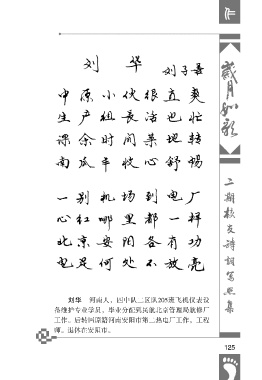 作
刘 华 刘子善
中原小伙很直爽
生产组长活也忙
课余时间菜地转
南瓜丰收心舒畅
一别机场到电厂
心红哪里都一样
北京安阳各有功
电是何处不放亮
刘华 河南人，四中队二区队205班飞机仪表设
备维护专业学员。毕业分配到民航北京管理局航修厂
工作。后转回原籍河南安阳市第二热电厂工作。工程
师。退休在安阳市。
岁月如歌
二期校友诗词写照集
125